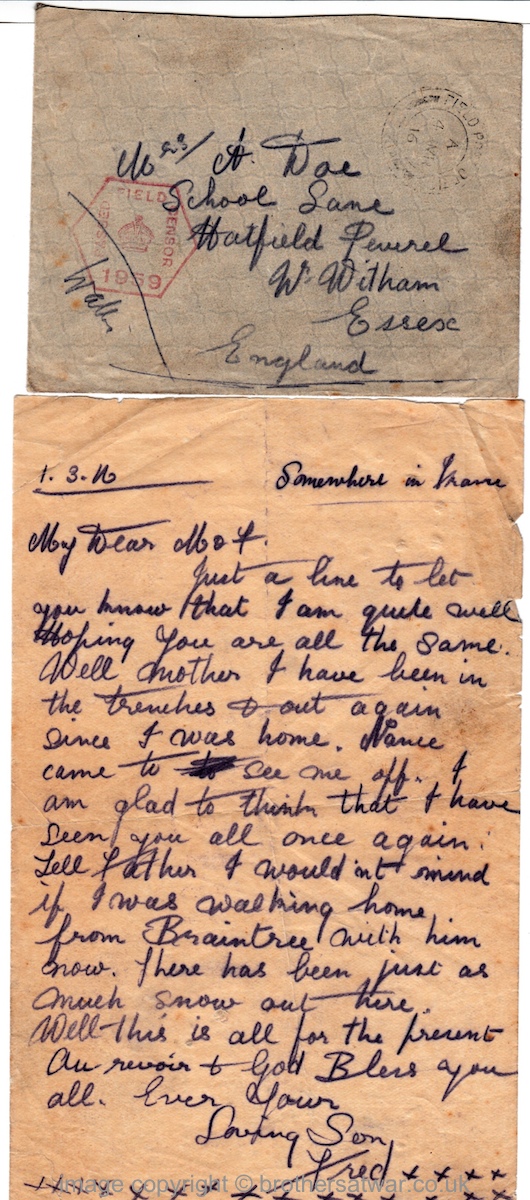 Mrs/ A. Doe
School Lane
Hatfield Peverel
Nr Witham
Essex
England
PASSED FIELD CENSOR
1959
FIELD PO
4 MR
16
1.3.16
Somewhere in France
My Dear M & F.
Just a line to let
you know that I am quite well
Hoping you are all the same.
Well mother I have been in
the trenches & out again
since I was home. Nance
came to see me off. I
am glad to think that I have
seen you all once again.
Tell Father I would'nt mind
if I was walking home
from Braintree with him
now. There has been just as
much snow out here.
Well this is all for the present
Au revoir & God Bless you
all. Ever Your
Loving Son
Fred x x x x
x x x x x x x x x x
image copyright © brothersatwar.co.uk